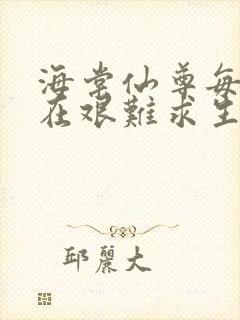 海棠仙尊每
在艰難求生
邱麗大